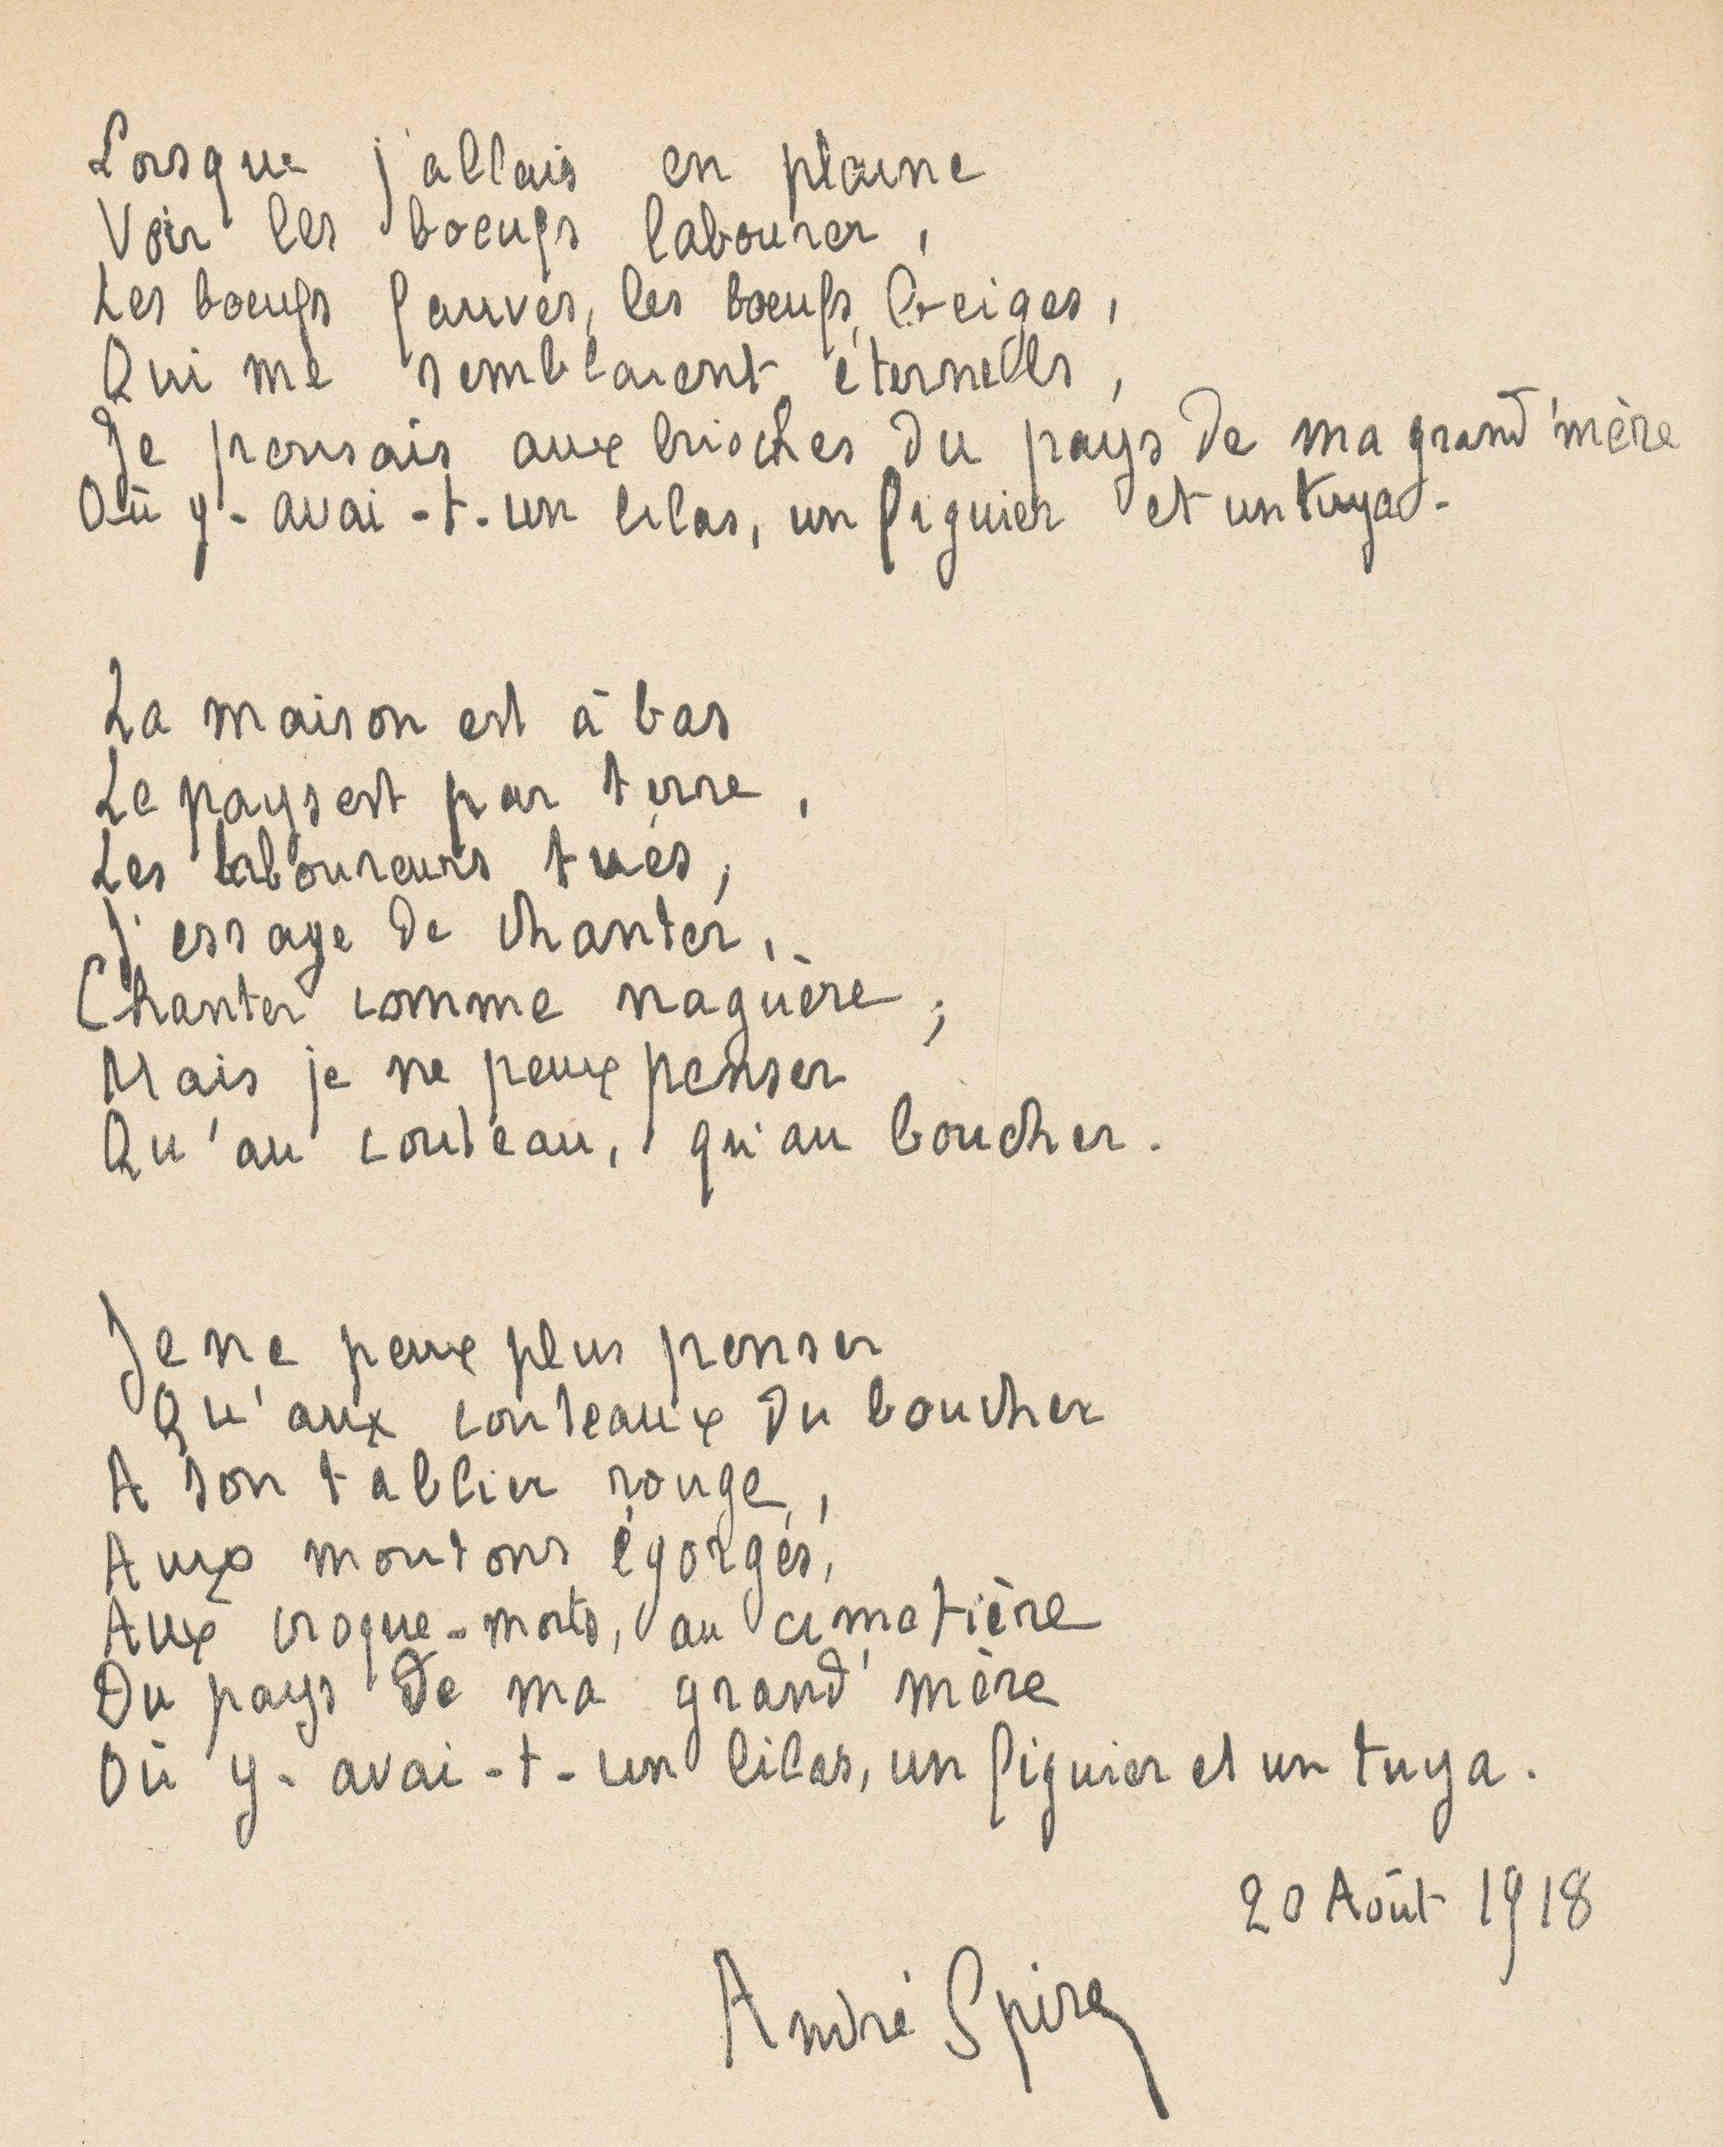 Lorsque j'allais en plaine
Voir les boeufs labourer,
Les boeufs fauves, les boeufs beiges,
Qui me semblaient éternels,
Je pensais aux brioches du pays de ma grand'mère
Où y-avai-t-un lilas, un figuier et un tuya.
La maison est à bas
Le pays est par terre,
Les laboureurs tués,
J'essaye de chanter,
Chanter comme naguère;
Mais je ne peux penser
Qu'au couteau, qu'au boucher.
Je ne peux plus penser
Qu'aux couteaux du boucher
A son tablier rouge,
Aux moutons égorgés,
Aux croque-morts, au cimetière
Du pays de ma grand'mère
Où y-avai-t-un lilas, un figuier et un tuya.
20 Août 1918
André Spire